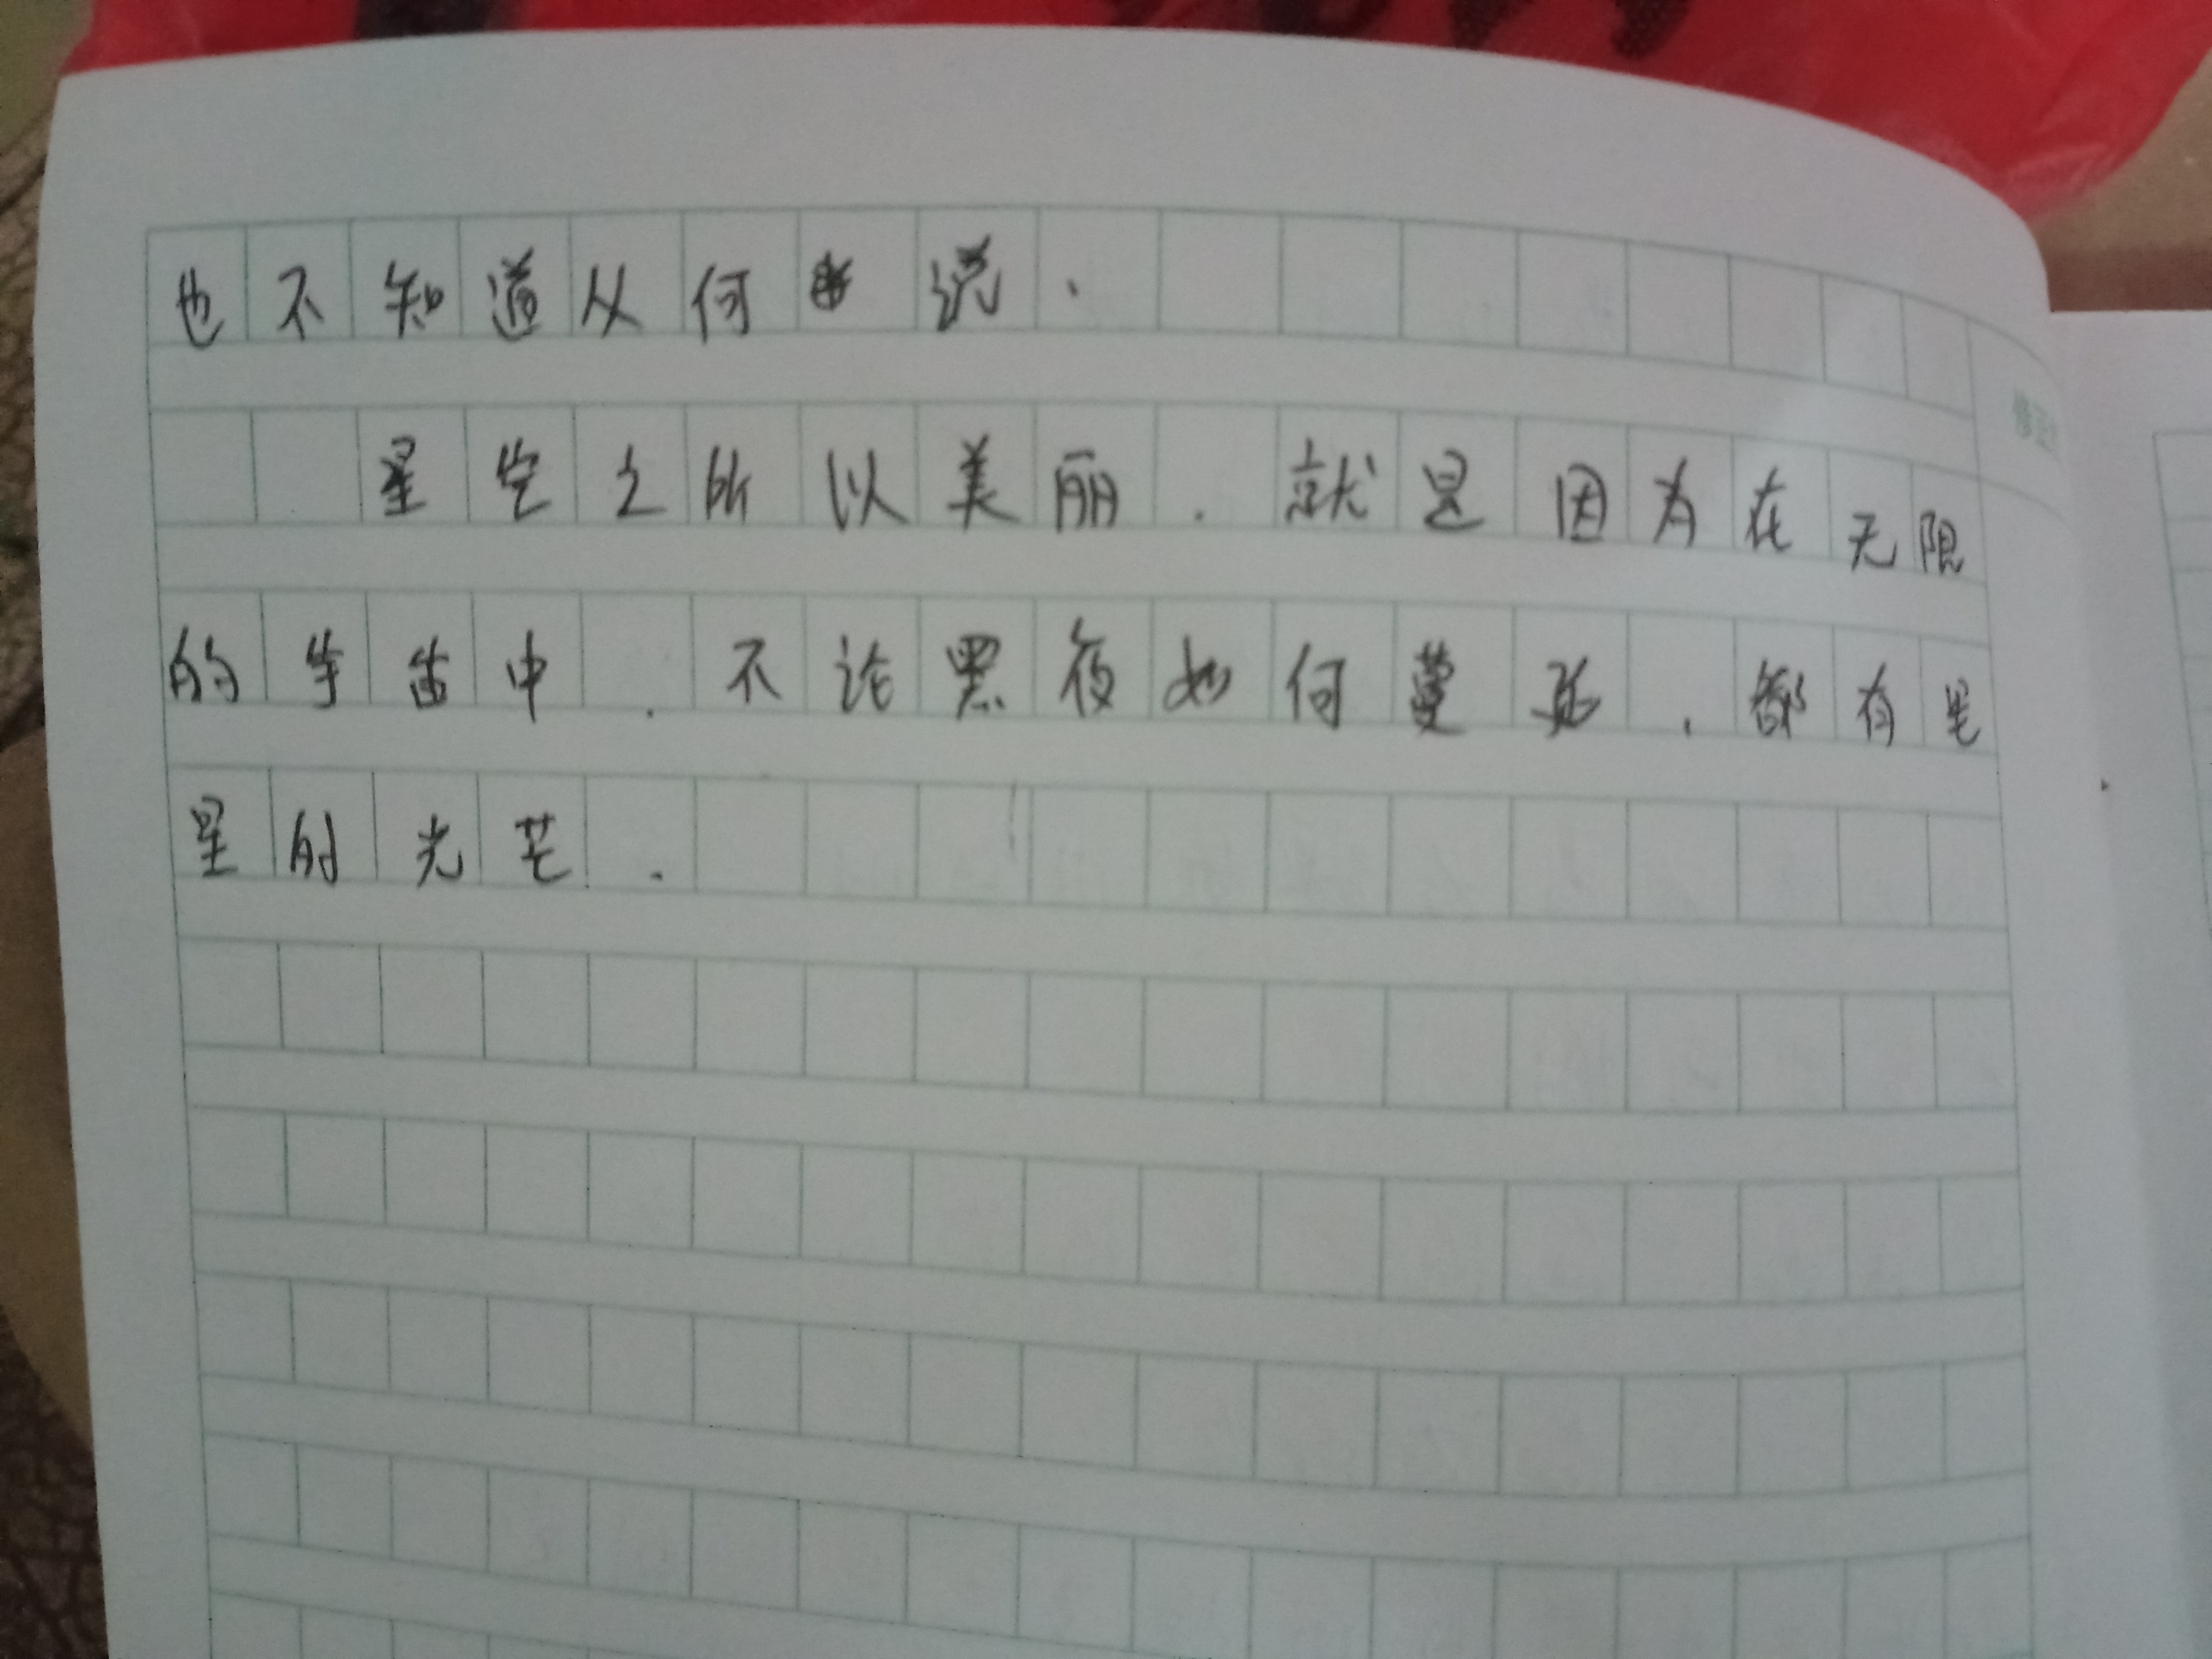 也不知道从何说.
星空之所以美丽.就是因为在无限
的宇宙中.不论黑夜如何蔓延,都有星
星的光芒.